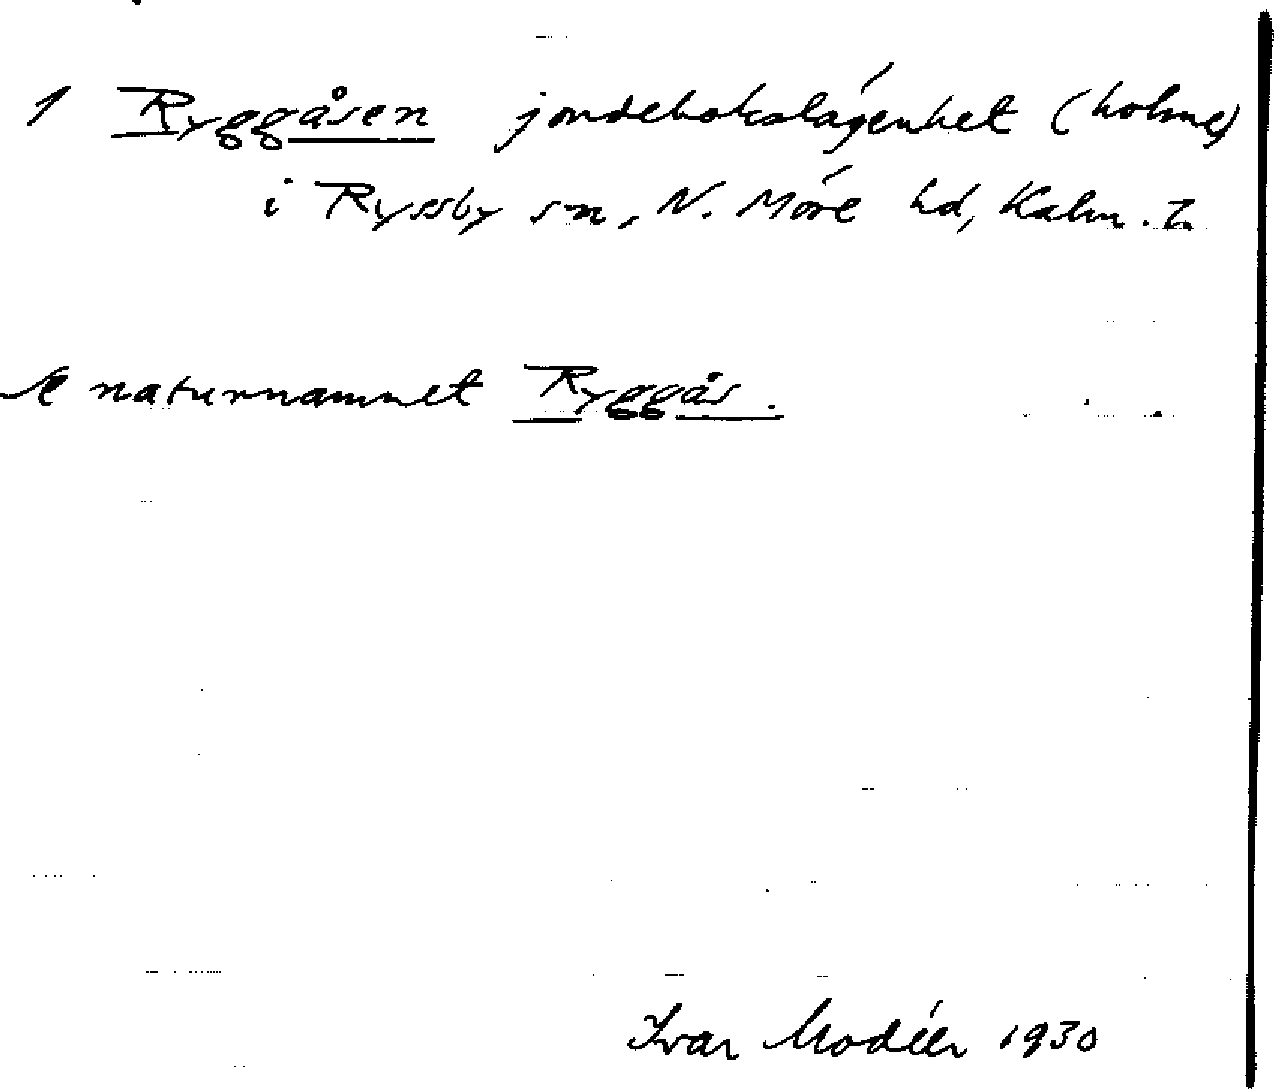 1 Ryggåsen jordebokslägenhet (holme)
i Ryssby sn, N. Möre hd, Kalm. l.
Se naturnamnet Ryggås.
Ivar Modéer 1930